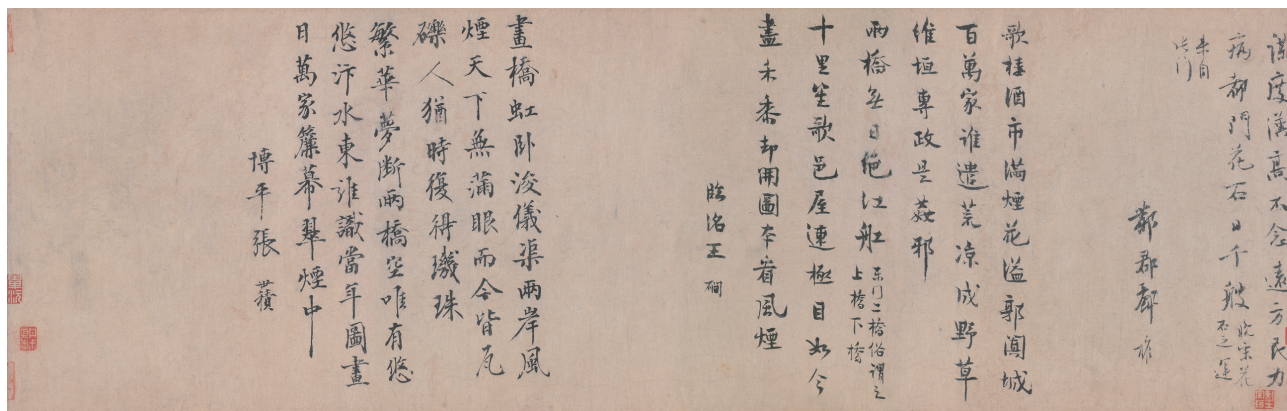 謀度漢高不念遠方民力
病都門花石日千艘晚宋花
石之運
來自
此門
鄴郡酈權
歌樓酒市滿煙花溢郭闐城
百萬家誰遣荒涼成野草
維垣專政是姦邪
兩橋無日絕江舡東門二橋俗謂之
上橋下橋
十里笙歌邑屋連極目如今
盡禾黍却開圖本看風煙
臨洺王磵
畫橋虹卧浚儀渠兩岸風
煙天下無滿眼而今皆瓦
礫人猶時復得璣珠
繁華夢斷兩橋空唯有悠
悠汴水東誰識當年圖畫
日萬家簾幕翠煙中
博平張